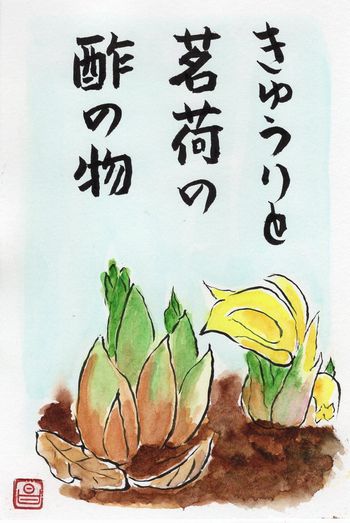 きゅうりと
茗荷の
酢の物